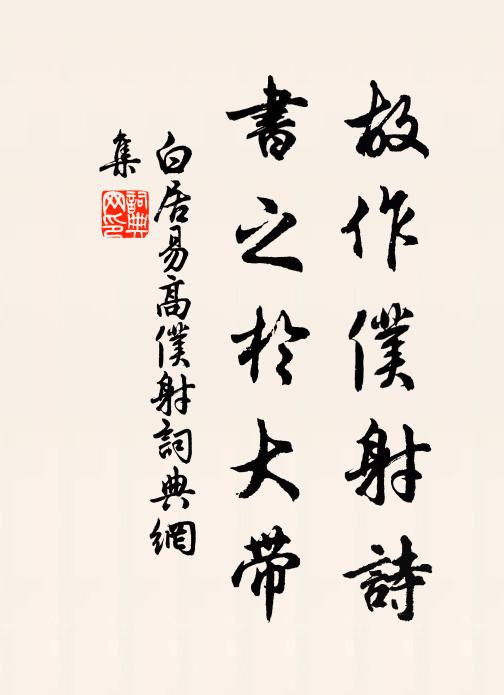 故作僕射詩
書之於大帶
白居易高僕射詞典網
集
詞典
网印